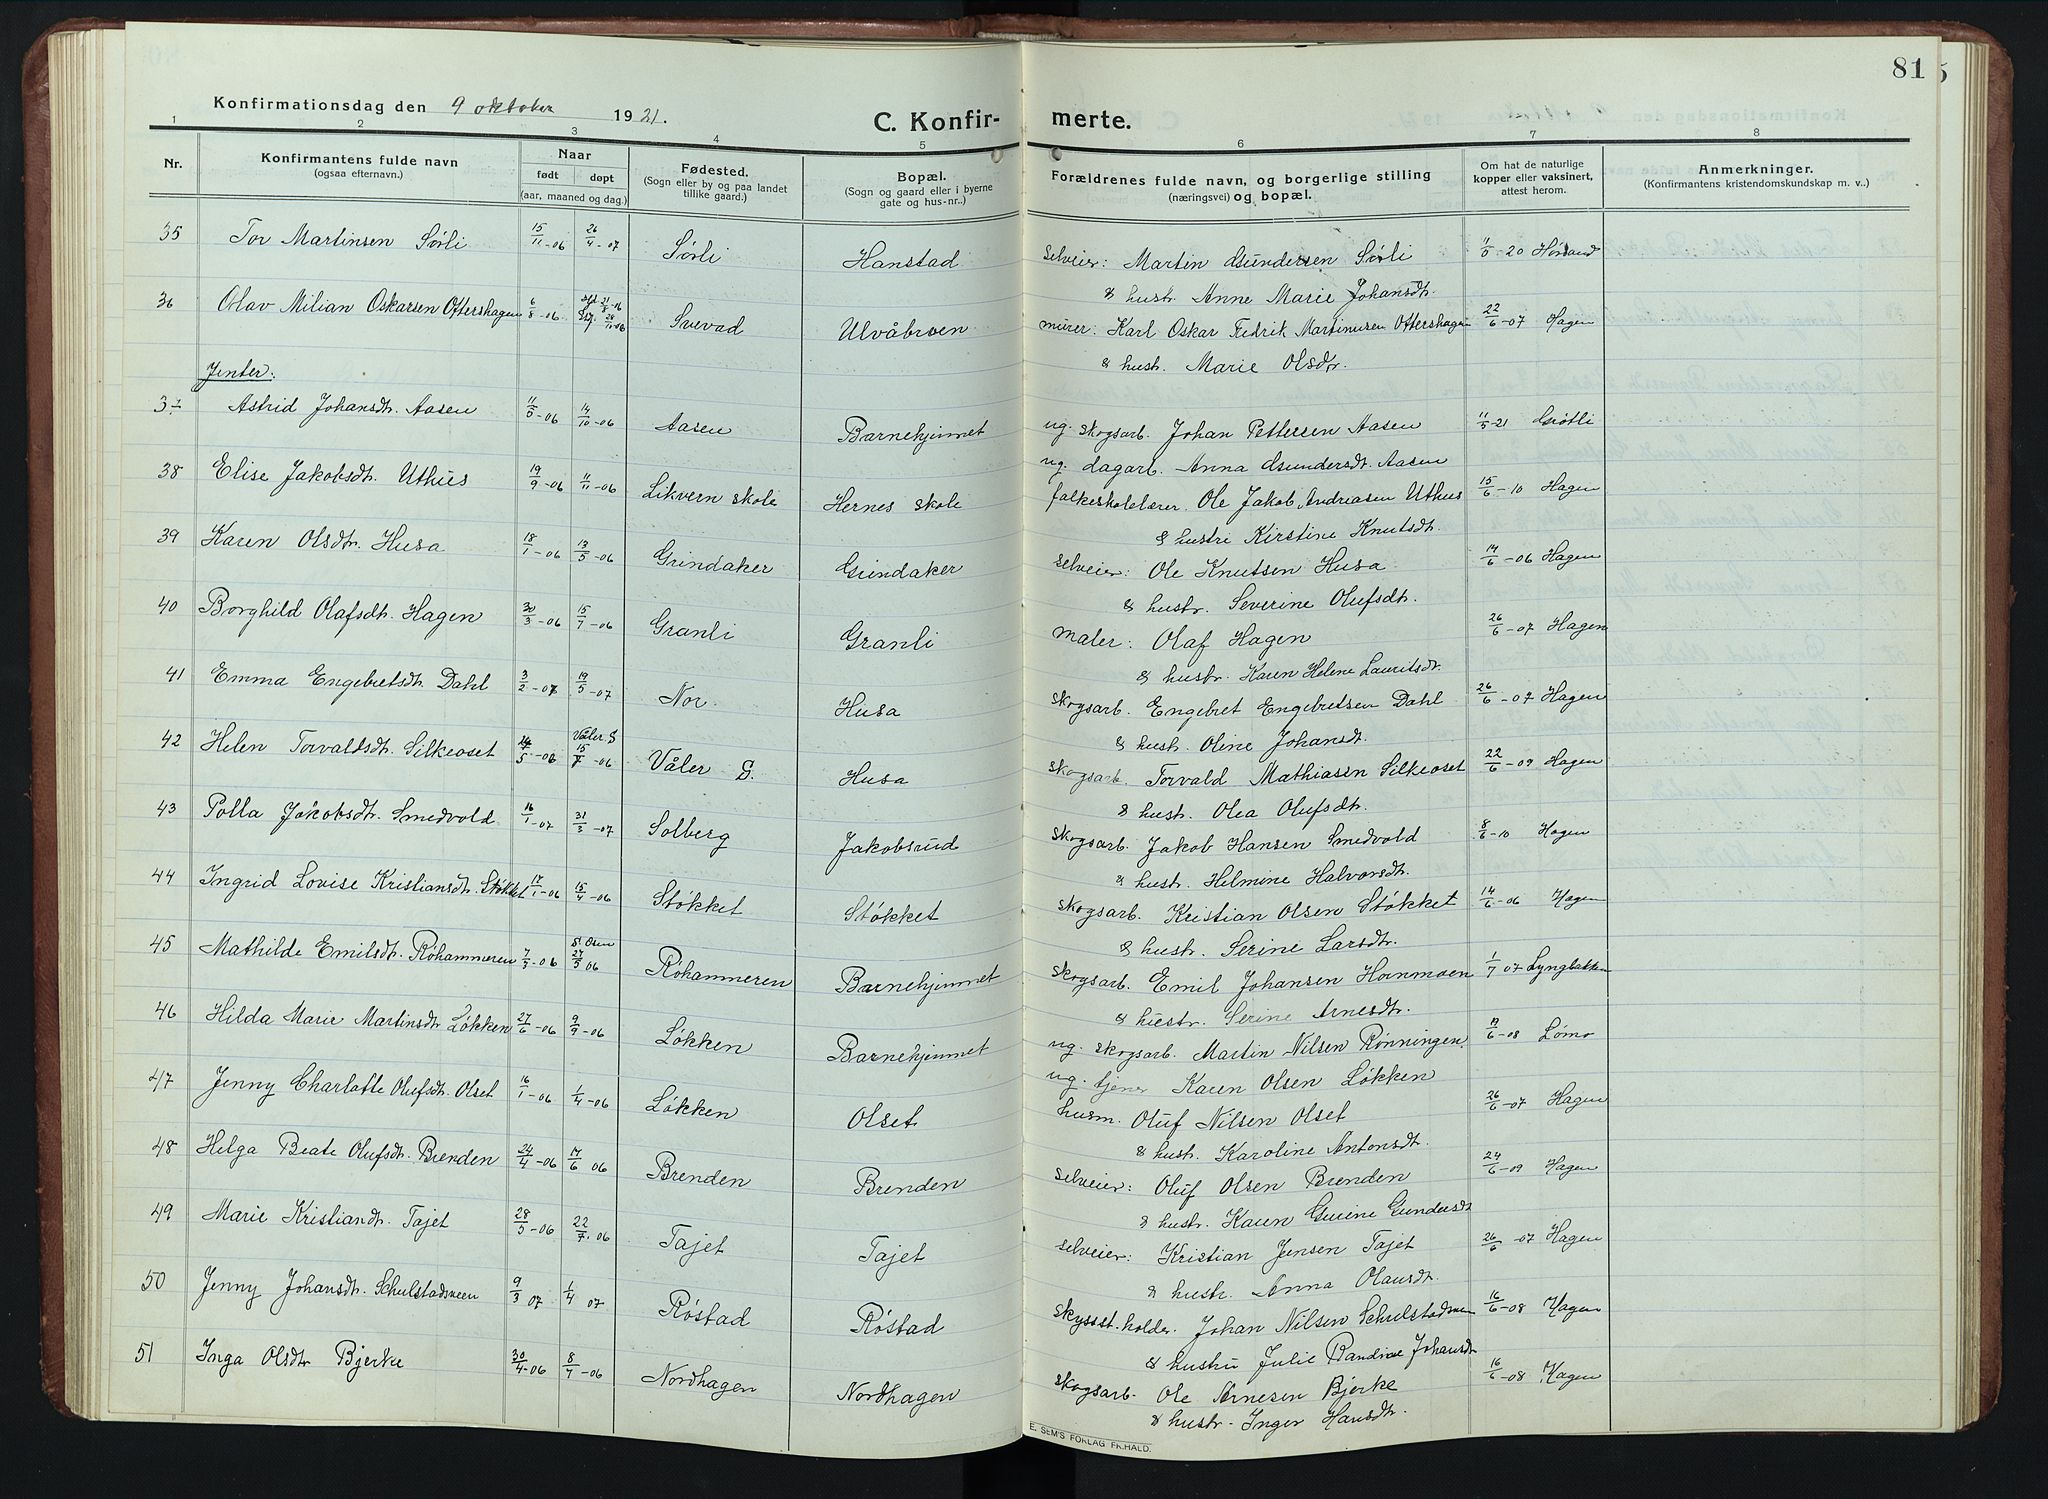 81
5
Konfirmationsdag den 9 oktober 1921.
C. Konfirmerte.
1 2 3 4 5 6 7 8
Nr. Konfirmantens fulde navn (ogsaa efternavn.) Naar født døpt (aar, maaned og dag.) Fødested. (Sogn eller by og paa landet tillike gaard.) Bopæl. (Sogn og gaard eller i byerne gate og hus-nr..) Forældrenes fulde navn, og borgerlige stilling (næringsvei) og bopæl. Om hat de naturlige kopper eller vaksinert, attest herom. Anmerkninger. (Konfirmantens kristendomskundskap m. v..)
35 Tor Martinsen Sørli 15/11-06 26/4-07 Sørli Hanstad selveier: Martin Gundersen Sørli 20
& hustr. Anne Marie Johansdt.
36 Olav Milian Oskarsen Oftershagen 6/8-06 Svevad Ulvåbroen murer: Karl Oskar Fredrik Martinusen Oftershagen 22/6-07 Hagen
& hustr. Marie Olsdtr.
Jenter:
37 Astrid Johansdt. Aasen 11/5-06 14/10-06 Aasen Barnehjemmet ug. skogsarb. Johan Pettersen Aasen 11/5-21 Grøtli
ug. dagarb. Anna Gundersdt. Aasen
38 Elise Jakobsdt. Uthus 19/9-06 11/11-06 Likvern skole Hernes skole folkeskolelærer Ole Jakob Andreasen Uthus 15/6-10 Hagen
& hustru Kirstine Knutsdt.
39 Karen Olsdtr. Husa 18/1-06 13/5-06 Grindaker Grindaker selveier: Ole Knutsen Husa 14/6-06 Hagen
& hustr. Severine Olufsdt.
40 Borghild Olafsdt. Hagen 30/3-06 15/7-06 Granli Granli maler: Olaf Hagen 26/6-07 Hagen
& hustr. Karen Helene Lauritsdt.
41 Emma Engebretsdt. Dahl 3/2-07 19/5-07 Nor. Husa skogsarb. Engebret Engebretsen Dahl 26/6-07 Hagen
& hustr. Oline Johansdt.
42 Helen Torvaldsdt. Silkeoset /5-06 Våler S 15/7-06 Våler S. Husa skogsarb. Torvald Mathiasen Silkeoset 22/6-09 Hagen
& hustr. Olea Olufsdt.
43 Polla Jakobsdt. Smedvold 16/1-07 31/3-07 Solberg Jakobsrud skogsarb. Jakob Hansen Smedvold 8/6-10 Hagen
& hustr. Helmine Halvorsdt.
44 Ingrid Lovise Kristiansdt. Støkket 17/1-06 15/4-06 Støkket Støkket skogsarb. Kristian Olsen Støkket 14/6-06 Hagen
& hustr. Serine Larsdt.
45 Mathilde Emilsdt. Røhammeren 7/3-06 S. Osen 27/5 06 Røhammeren Barnehjemmet skogsarb. Emil Johansen Hornmoen 1/7 07 Lyngbakken
& hustr. Serine Arnesdt.
46 Hilda Marie Martinsdt. Løkken 27/6-06 9/9-06 Løkken Barnehjemmet ug. skogsarb. Martin Nilsen Rønningen. 17/6-08 Lømo
ug. tjener Karen Olsen Løkken
47 Jenny Charlotte Olufsdt. Olset 16/1-06 1/4-06 Løkken Olset husm. Oluf Nilsen Olset 26/6-07 Hagen
& hustr. Karoline Antonsdt.
48 Helga Beate Olufsdt. Brenden 24/4-06 17/6 06 Brenden Brenden selveier: Oluf Olsen Brenden 24/6-09 Hagen
& hustr. Karen Gurine Gundersdt
49 Marie Kristiandt. Tajet 28/5-06 22/7-06 Tajet Tajet selveier: Kristian Jensen Tajet 26/6-07 Hagen
& hustr. Anna Olausdt.
50 Jenny Johansdt. Schulstadsveen 9/3 07 1/4 07 Røstad Røstad skysst.holder. Johan Nilsen Schulstadsveen 16/6-08 Hagen
& hustru Julie Bandine Johansdt
51 Inga Olsdtr Bjerke 30/4-06 8/7-06 Nordhagen Nordhagen skogsarb. Ole Arnesen Bjerke 16/6-08 Hagen
& hustr. Inger Hansdt.
E. SEM'S FORLAG FR.HALD.